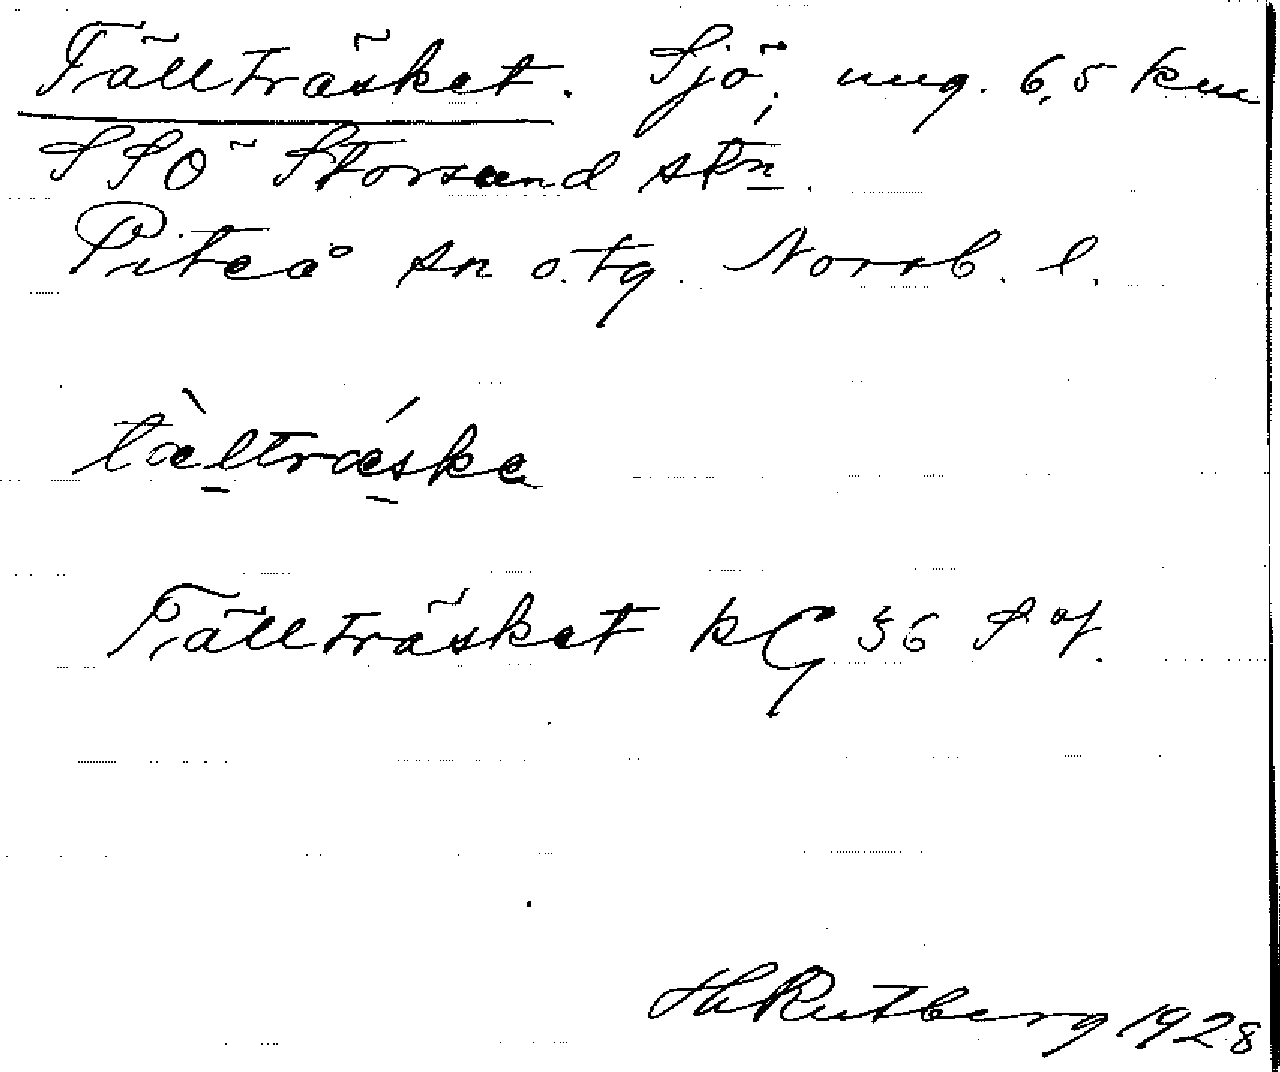 Tällträsket. Sjö, ung. 6,5 km
SSÖ Storsund stn.
Piteå sn o. tg. Norrb. l.
tæ̀ltrǽske
Tällträsket kG 36 S of.
H Rutberg 1928